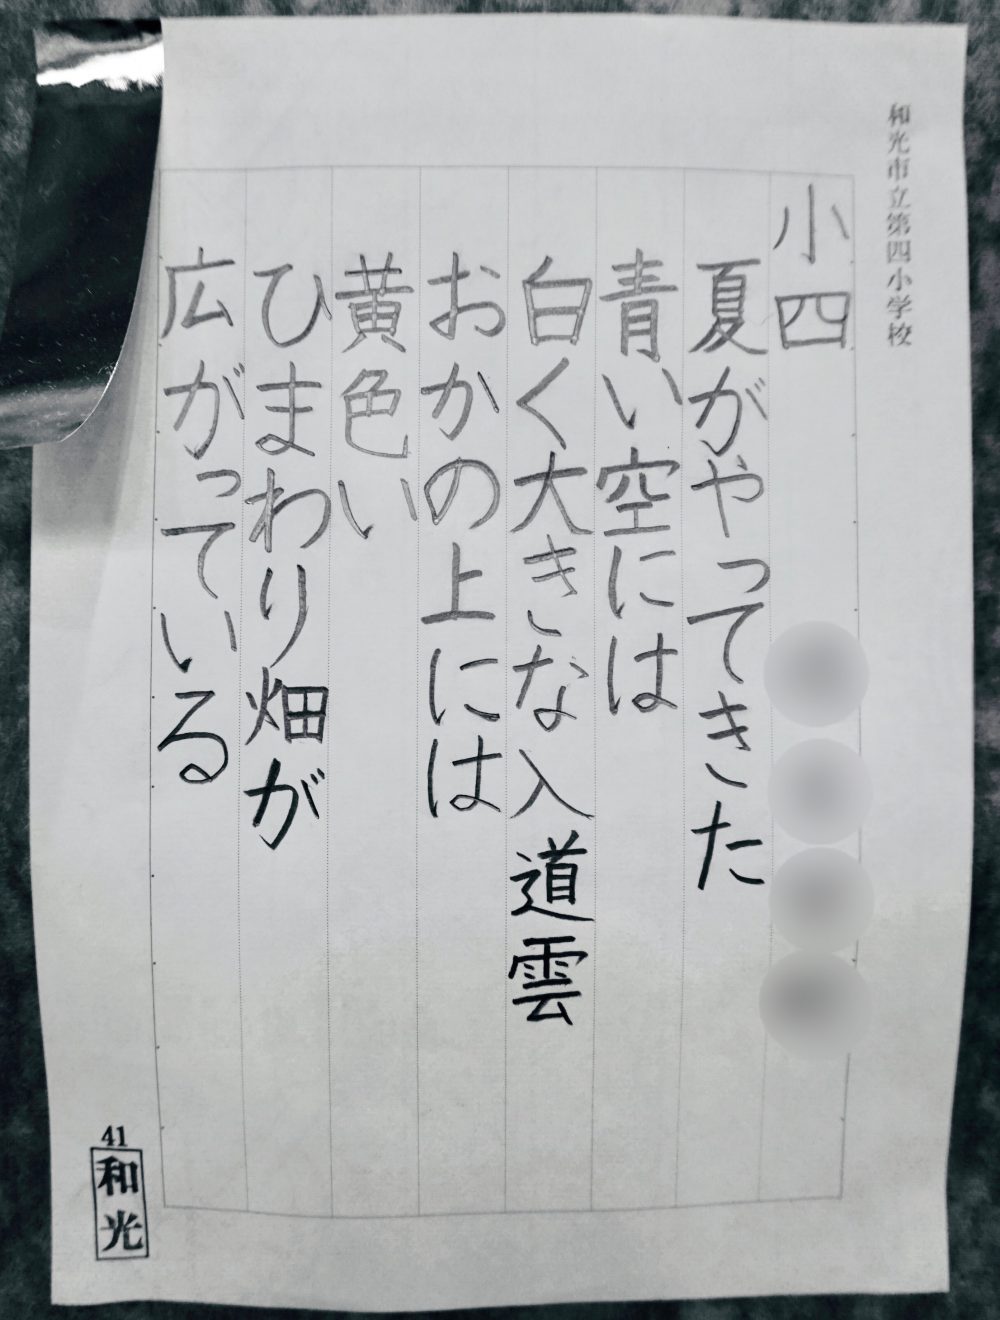 和光市立第四小学校
小四
夏がやってきた
青い空には
白く大きな入道雲
おかの上には
黄色い
ひまわり畑が
広がっている
41
和光